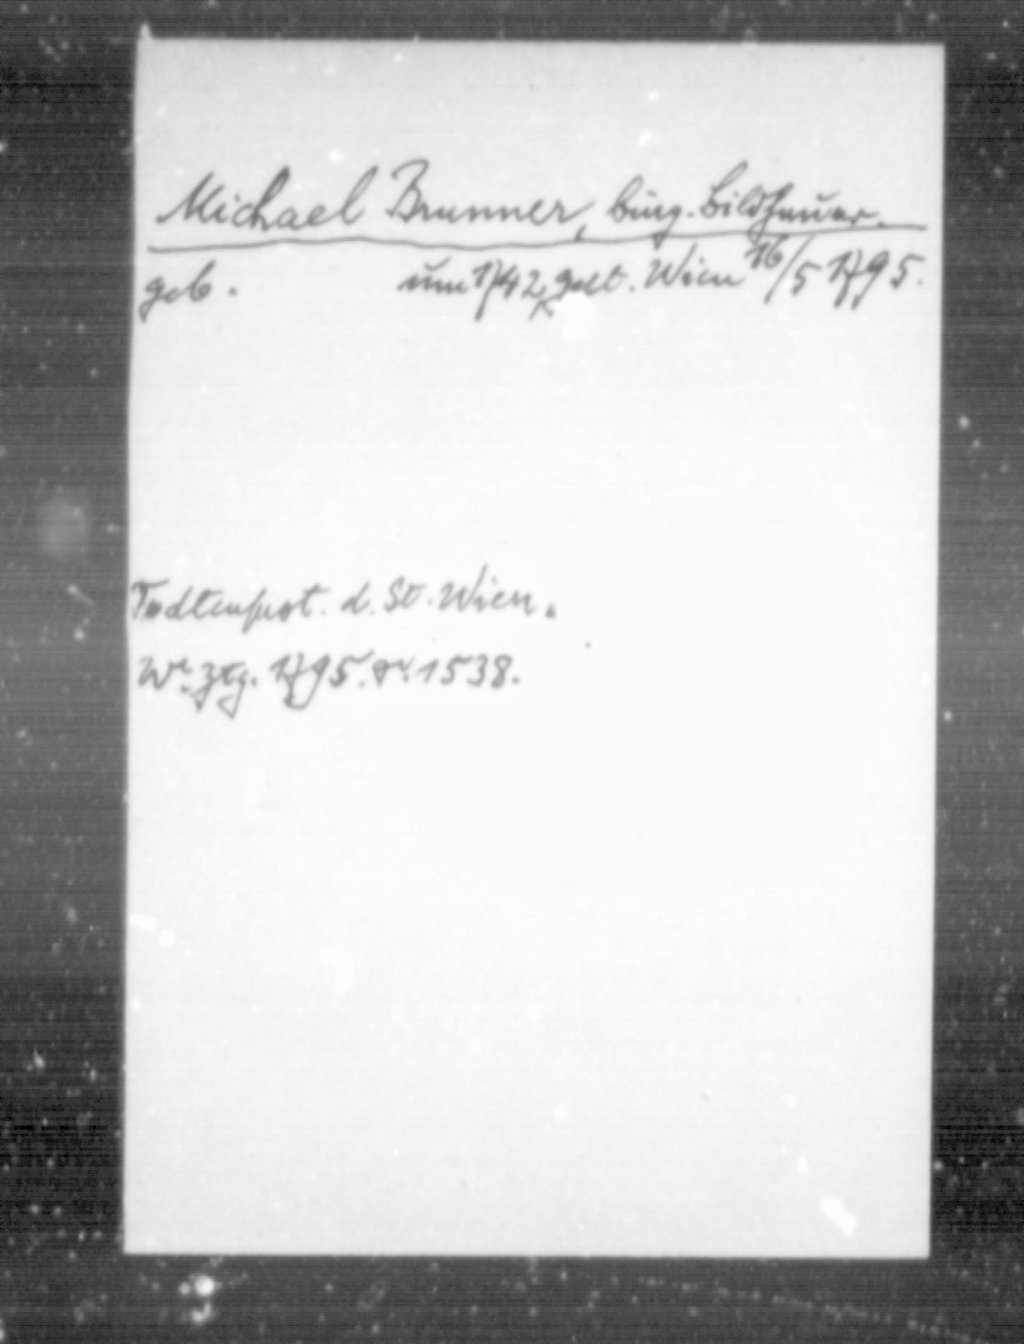 Michael Brunner, bürg. Bildhauer.
geb. um 1742, gest. Wien 16/5 1795.
Todtenprot. d. St. Wien.
Wr. Ztg. 1795. S. 1538.